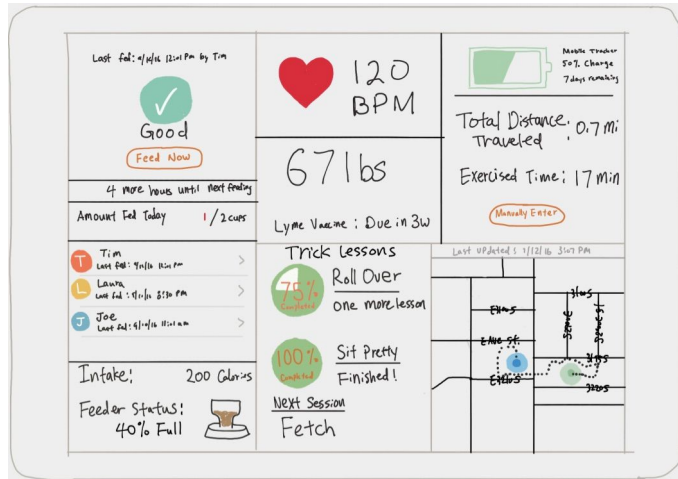 Last fed: 9/14/16 12:01 PM by Tim
Good
Feed Now
4 more hours until next feeding
Amount Fed Today 1/2 cups
T Tim
Last fed:
L Laura
Last fed:
J Joe
Last fed:
Intake: 200 Calories
Feeder Status:
40% Full
120
BPM
67 lbs
Lyme Vaccine: Due in 3w
Trick Lessons
75%
Completed
Roll Over
One more lesson
100%
Completed
Sit Pretty
Finished!
Next Session
Fetch
Mobile Tracker
50% Charge
7 days remaining
Total Distance: 0.7 mi
Traveled
Exercised Time: 17 min
Manually Enter
Last updated: 1/12/16 3:07 PM
3100S
3200S